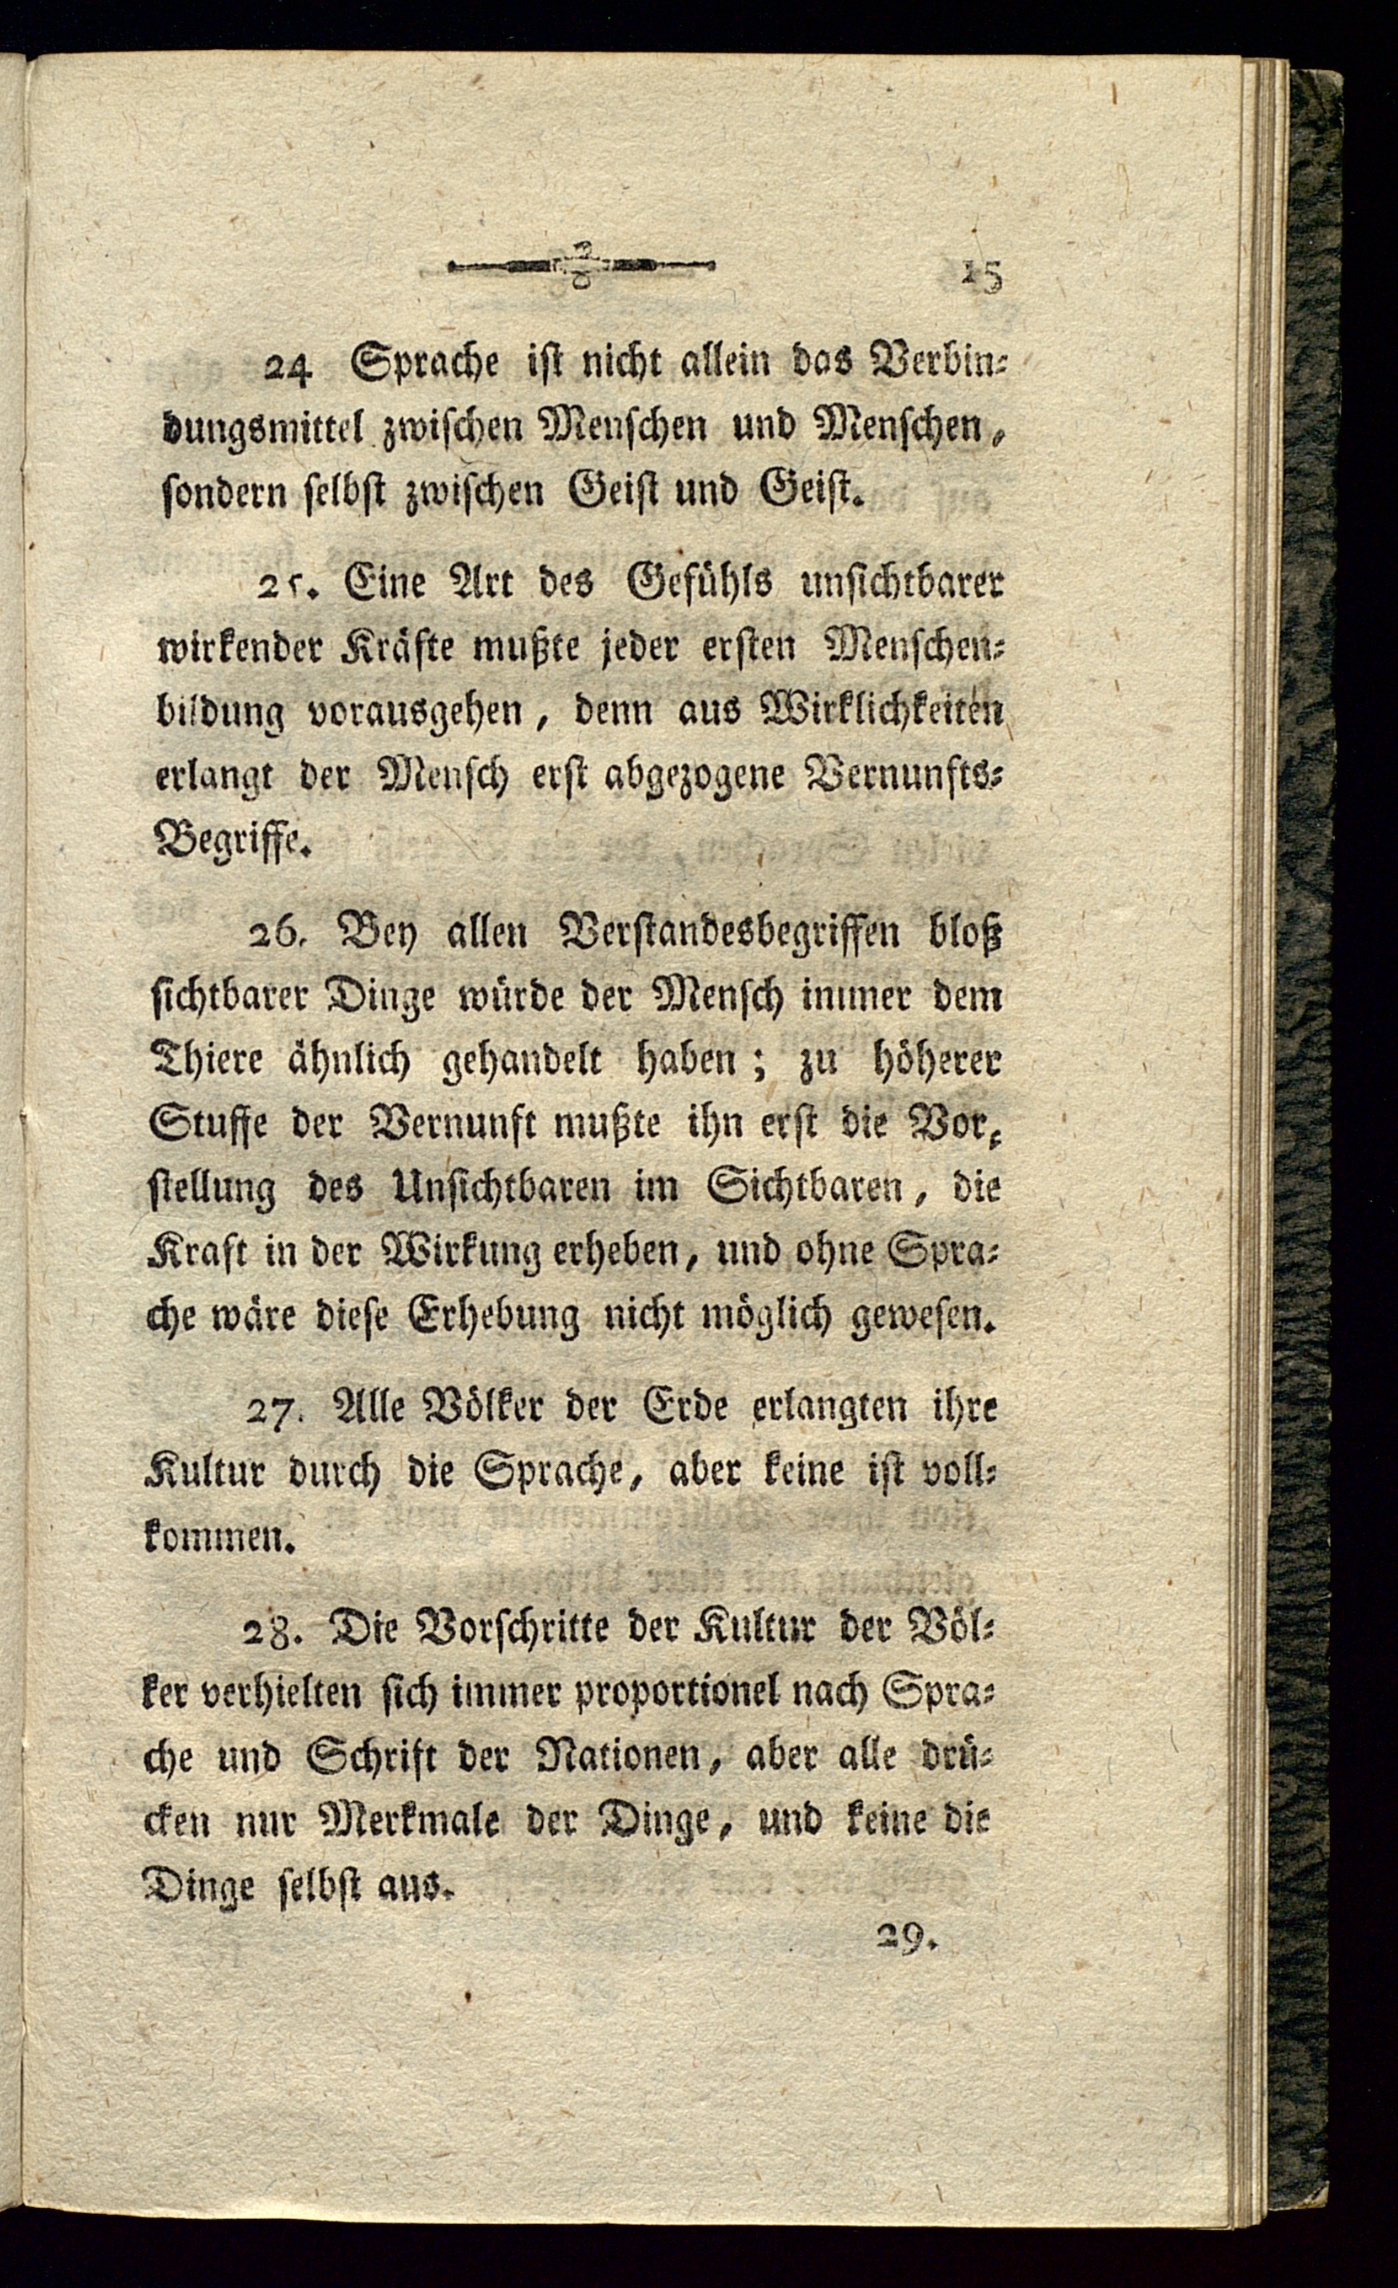 15
24 Sprache ist nicht allein das Verbin-
dungsmittel zwischen Menschen und Menschen,
sondern selbst zwischen Geist und Geist.
25. Eine Art des Gefühls unsichtbarer
wirkender Kräfte mußte jeder ersten Menschen-
bildung vorausgehen, denn aus Wirklichkeiten
erlangt der Mensch erst abgezogene Vernunfts-
Begriffe.
26. Bey allen Verstandesbegriffen bloß
sichtbarer Dinge würde der Mensch immer dem
Thiere ähnlich gehandelt haben; zu höherer
Stuffe der Vernunft mußte ihn erst die Vor-
stellung des Unsichtbaren im Sichtbaren, die
Kraft in der Wirkung erheben, und ohne Spra-
che wäre diese Erhebung nicht möglich gewesen.
27. Alle Völker der Erde erlangten ihre
Kultur durch die Sprache, aber keine ist voll-
kommen.
28. Die Vorschritte der Kultur der Völ-
ker verhielten sich immer proportionel nach Spra-
che und Schrift der Nationen, aber alle drü-
cken nur Merkmale der Dinge, und keine die
Dinge selbst aus.
29.